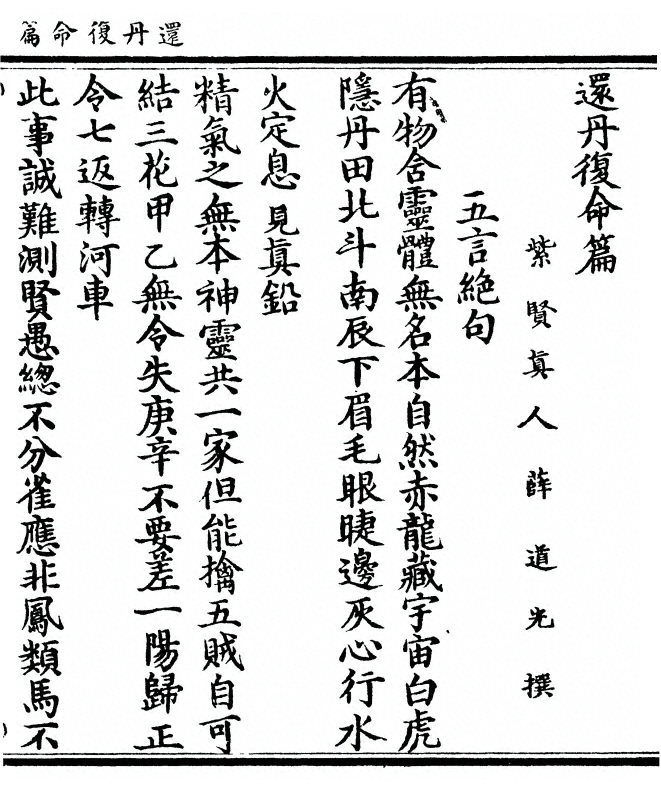 還丹復命篇
還丹復命篇
紫賢真人薛道光撰
五言絶句
有物含靈體無名本自然赤龍藏宇宙白虎
隱丹田北斗南辰下眉毛眼睫邊灰心行水
火定息見真鉛
精氣之無本神靈共一家但能擒五賊自可
結三花甲乙無令失庚辛不要差一陽歸正
令七返轉河車
此事誠難測賢愚總不分雀應非鳳類馬不